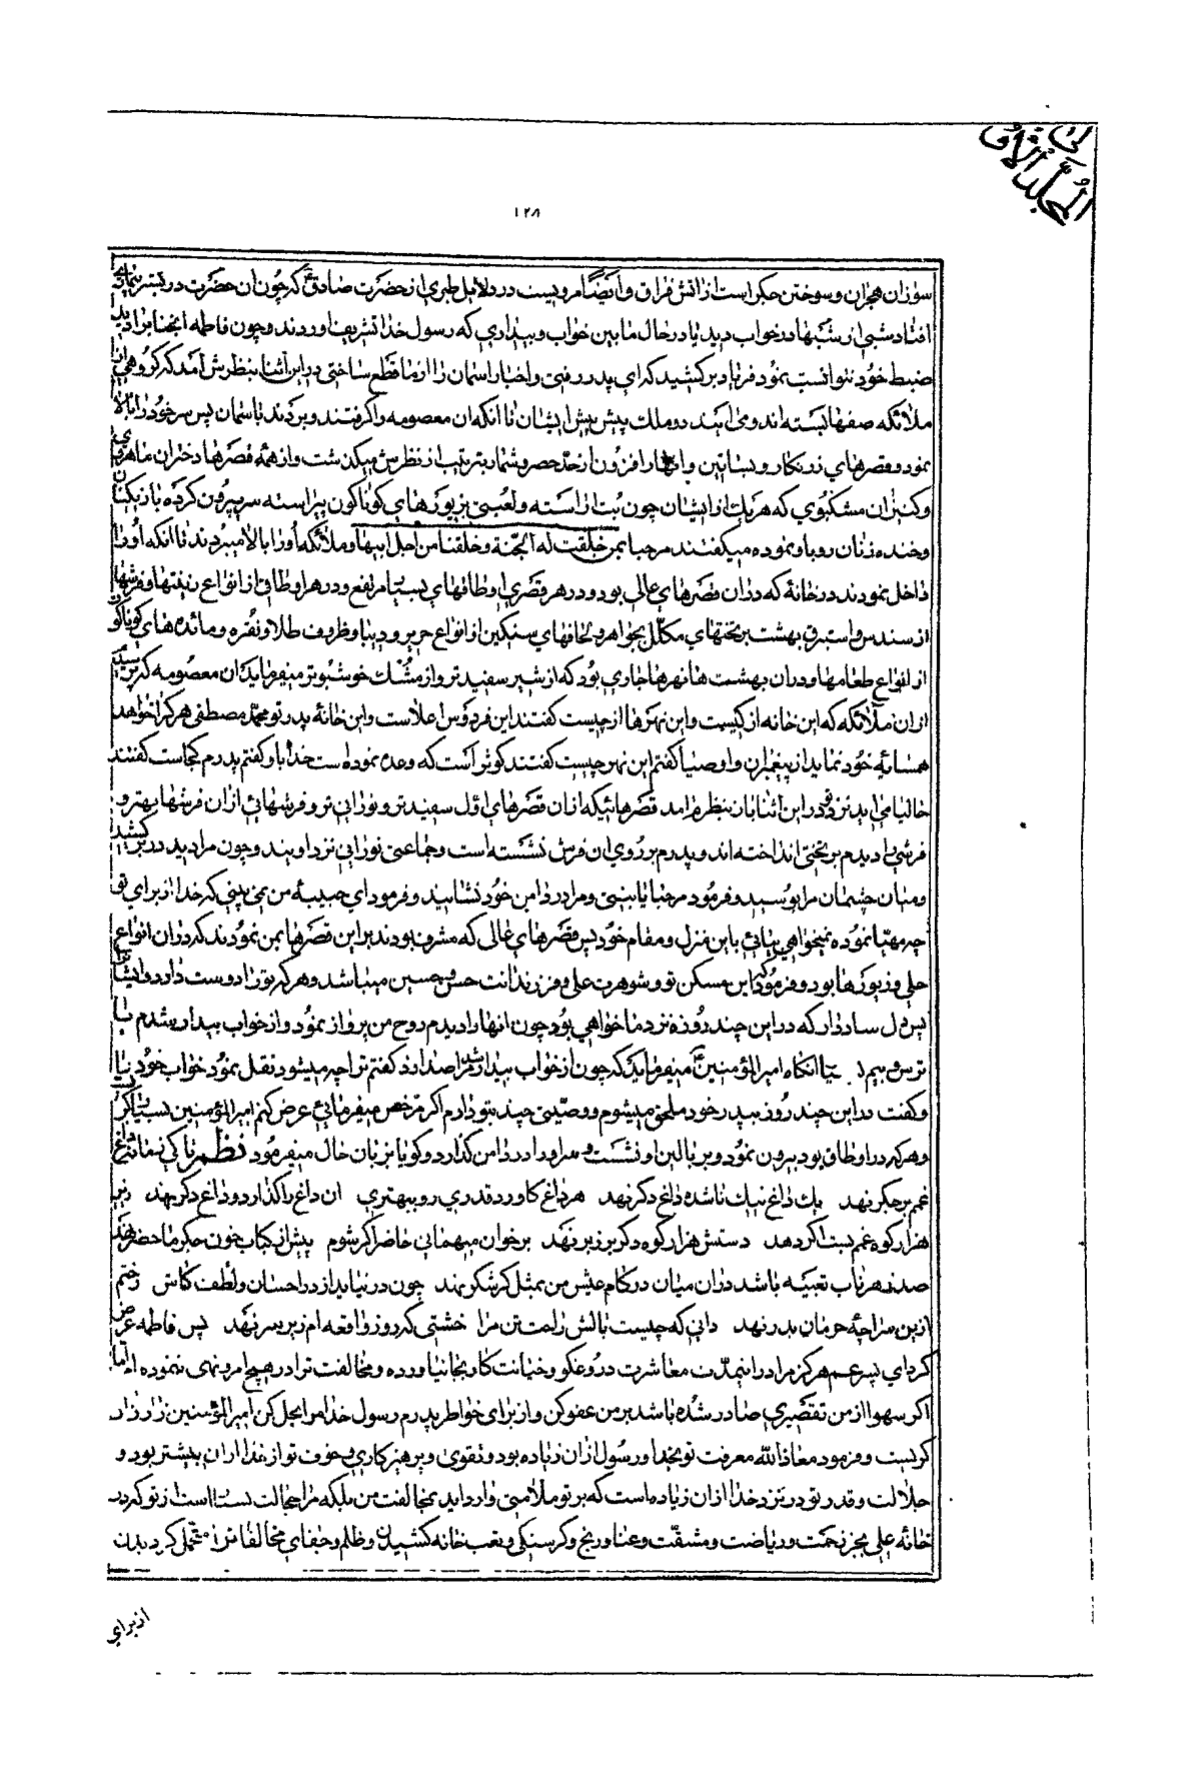 المجلد الاول
۱۲۸
سوزان هجران و سوختن جگر است از اتش فراق و ایضًا مرویست در دلایل طبری از حضرت صادقؑ که چون ان حضرت در بستر بیماری
افتاد شبی از شبها در خواب دید یا در حال ما بین خواب و بیداری که رسول خدا تشریف اوردند و چون فاطمه انجناب را دید
ضبط خود نتوانست نمود فریاد بر کشید که ای پدر رفتی و اخبار اسمان را از ما قطع ساختی در این اثنا بنظرش آمد که گروهی از
ملائکه صفها بسته اند و می ایند دو ملک پیش پیش ایشان تا انکه ان معصومه را گرفتند و بردند باسمان پس سر خود را بالا
نمود و قصرهای زرنگار و بساتین و انهار افزون از حد حصر و شمار بترتیب از نظرش میگذشت و از همهٔ قصرها دختران ماهروی
و کنیزان مشکبوی که هریک از ایشان چون بت اراسته و لعبتی بزیورهای گوناگون پیراسته سر بیرون کرده بازی کنان
و خنده زنان رو باو نموده میگفتند مرحبا بمن خلقت له الجنة و خلقنا من اجل ابیها و ملائکه او را بالا میبردند تا انکه او را
داخل نمودند در خانهٔ که دران قصرهای عالی بود و در هر قصری اوطاقهای بسیار مرتفع و در هر اوطاقی از انواع زینتها و فرشها
از سندس و استبرق بهشت بر تختهای مکلل بجواهر و لحافهای سنگین از انواع حریر و دیبا و ظروف طلا و نقره و مائدههای گوناگون
از انواع طعامها و دران بهشت ها نهرها جاری بود که از شیر سفیدتر و از مشک خوشبوتر میفرماید که ان معصومه که پرسید
ازان ملائکه که این خانه از کیست و این نهرها از چیست گفتند این فردوس اعلاست و این خانهٔ پدر تو محمد مصطفی هر که را خواهد
همسایهٔ خود نماید از پیغمبران و اوصیا گفتم این نهر چیست گفتند کوثر است که وعده نموده است خدا باو گفتم پدرم کجاست گفتند
حالیا می اید نزد تو در این اثنا باز بنظرم امد قصرهائیکه ازان قصرهای اول سفیدتر و نورانی تر و فرشهائی ازان فرشها بهتر و
فرشی را دیدم بر تختی انداخته اند و پدرم بر روی ان فرش نشسته است و جماعتی نورانی نزد اویند و چون مرا دید در بر کشید
و میان چشمان مرا بوسید و فرمود مرحبا یا بنتی و مرا در دامن خود نشانید و فرمود ای حبیبهٔ من نمی بینی که خدا از برای تو
چه مهیا نموده نمیخواهی بیائی باین منزل و مقام خود پس قصرهای عالی که مشرف بودند بر این قصرها بمن نمودند که دران انواع
حلی و زیورها بود و فرمود که این مسکن تو و شوهرت علی و فرزندانت حسن و حسین میباشد و هر که تو را دوست دارد و ایشان را
پس دل ساد دار که در این چند روزه نزد ما خواهی بود چون انها را دیدم روح من پرواز نمود و از خواب بیدار شدم با
ترس و بیم انگاه امیرالمؤمنینؑ میفرماید که چون از خواب بیدار شد مرا صدا زد گفتم ترا چه میشود نقل نمود خواب خود را
و گفت در این چند روز بپدر خود ملحق میشوم و وصیتی چند بتو دارم اگر مرخص میفرمائی عرض کنم امیرالمؤمنین بسیار گریست
و هر که در اوطاق بود بیرون نمود و بر بالین او نشست و سر او را در دامن گذارد و گویا بزبان حال میفرمود نظم تا کی زمانه داغ
غمم بر جگر نهد یک داغ نیک ناشده داغ دگر نهد هر داغ کاورد قدری رو ببهتری ان داغ را گذارد و داغ دگر نهد زیر
هزار کوه غمم پست اگر دهد دستش هزار کوه دگر بر زبر نهد بر خوان میهمانی حاضر اگر شوم پیش از کباب خون جگر ما حضر نهد
صد زهر ناب تعبیه باشد دران میان در کام عیش من بمثل گر شکر نهد چون در نیاید از در احسان و لطف کاش رختم
ازین سراچهٔ حرمان بدر نهد دانی که چیست بالش راحت تن مرا خشتی که روز واقعه ام زیر سر نهد پس فاطمه عرض
کرد ای پسر عم هرگز مرا در اینمدت معاشرت دروغگو و خیانت کار بجا نیاورده و مخالفت ترا در هیچ امر و نهی ننموده ام اما
اگر سهوا از من تقصیری صادر شده باشد بر من عفو کن و از برای خواطر پدرم رسول خدا مرا بحل کن امیرالمؤمنین زار زار
گریست و فرمود معاذ الله معرفت تو بخدا و رسول ازان زیاده بود و تقوی و پرهیزکاری و خوف تو از خدا ازان بیشتر بود و
جلالت و قدر تو در نزد خدا ازان زیاده است که بر تو ملامتی وارد اید بمخالفت من بلکه مرا خجالت بسیار است از تو که در
خانهٔ علی بجز زحمت و ریاضت و مشقت و عنا و رنج و گرسنگی و تعب خانه کشیدن و ظلم و جفای مخالفانرا متحمل گردیدن
از برای